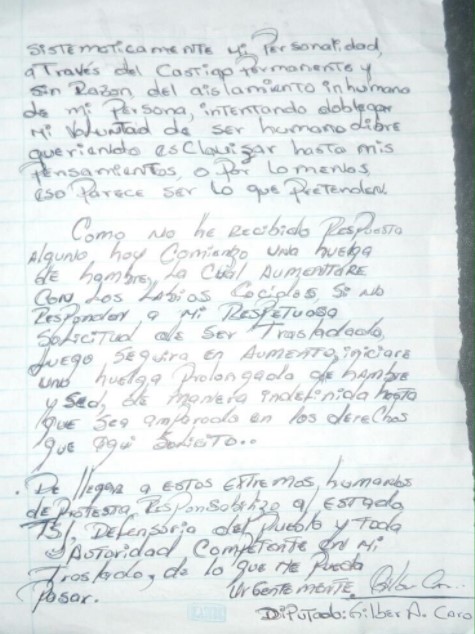 SISTEMATICAMENTE MI Personalidad,
a Través del Castigo Permanente y
Sin Razon del aislamiento inhumano
de mi Persona, intentando doblegar
Mi Voluntad de ser humano libre
queriendo esClavizar hasta mis
Pensamientos, o Por lo menos
eso Parece ser lo que Pretenden.
Como no he recibido Respuesta
Alguno hoy Comienzo una huelga
de hambre, la Cual Aumentare
CON LOS LABIOS Cocidos, Si no
Responden a Mi Respetuosa
Solicitud de Ser Trasladado,
Luego Seguira en AUMENTO, iniciare
una huelga Prolongada de hambre
y Sed, de Manera indefinida hasta
que Sea amparado en los derechos
que aqui Solicito..
. De llegar a estos extremos, humanos
de Protesta, Responsabilizo al Estado,
TSJ, Defensoria del Pueblo y Toda
Autoridad, Competente en Mi
Traslado, de lo que Me Pueda
Pasar.
Urgentemente.
Diputado: Gilber A. Caro